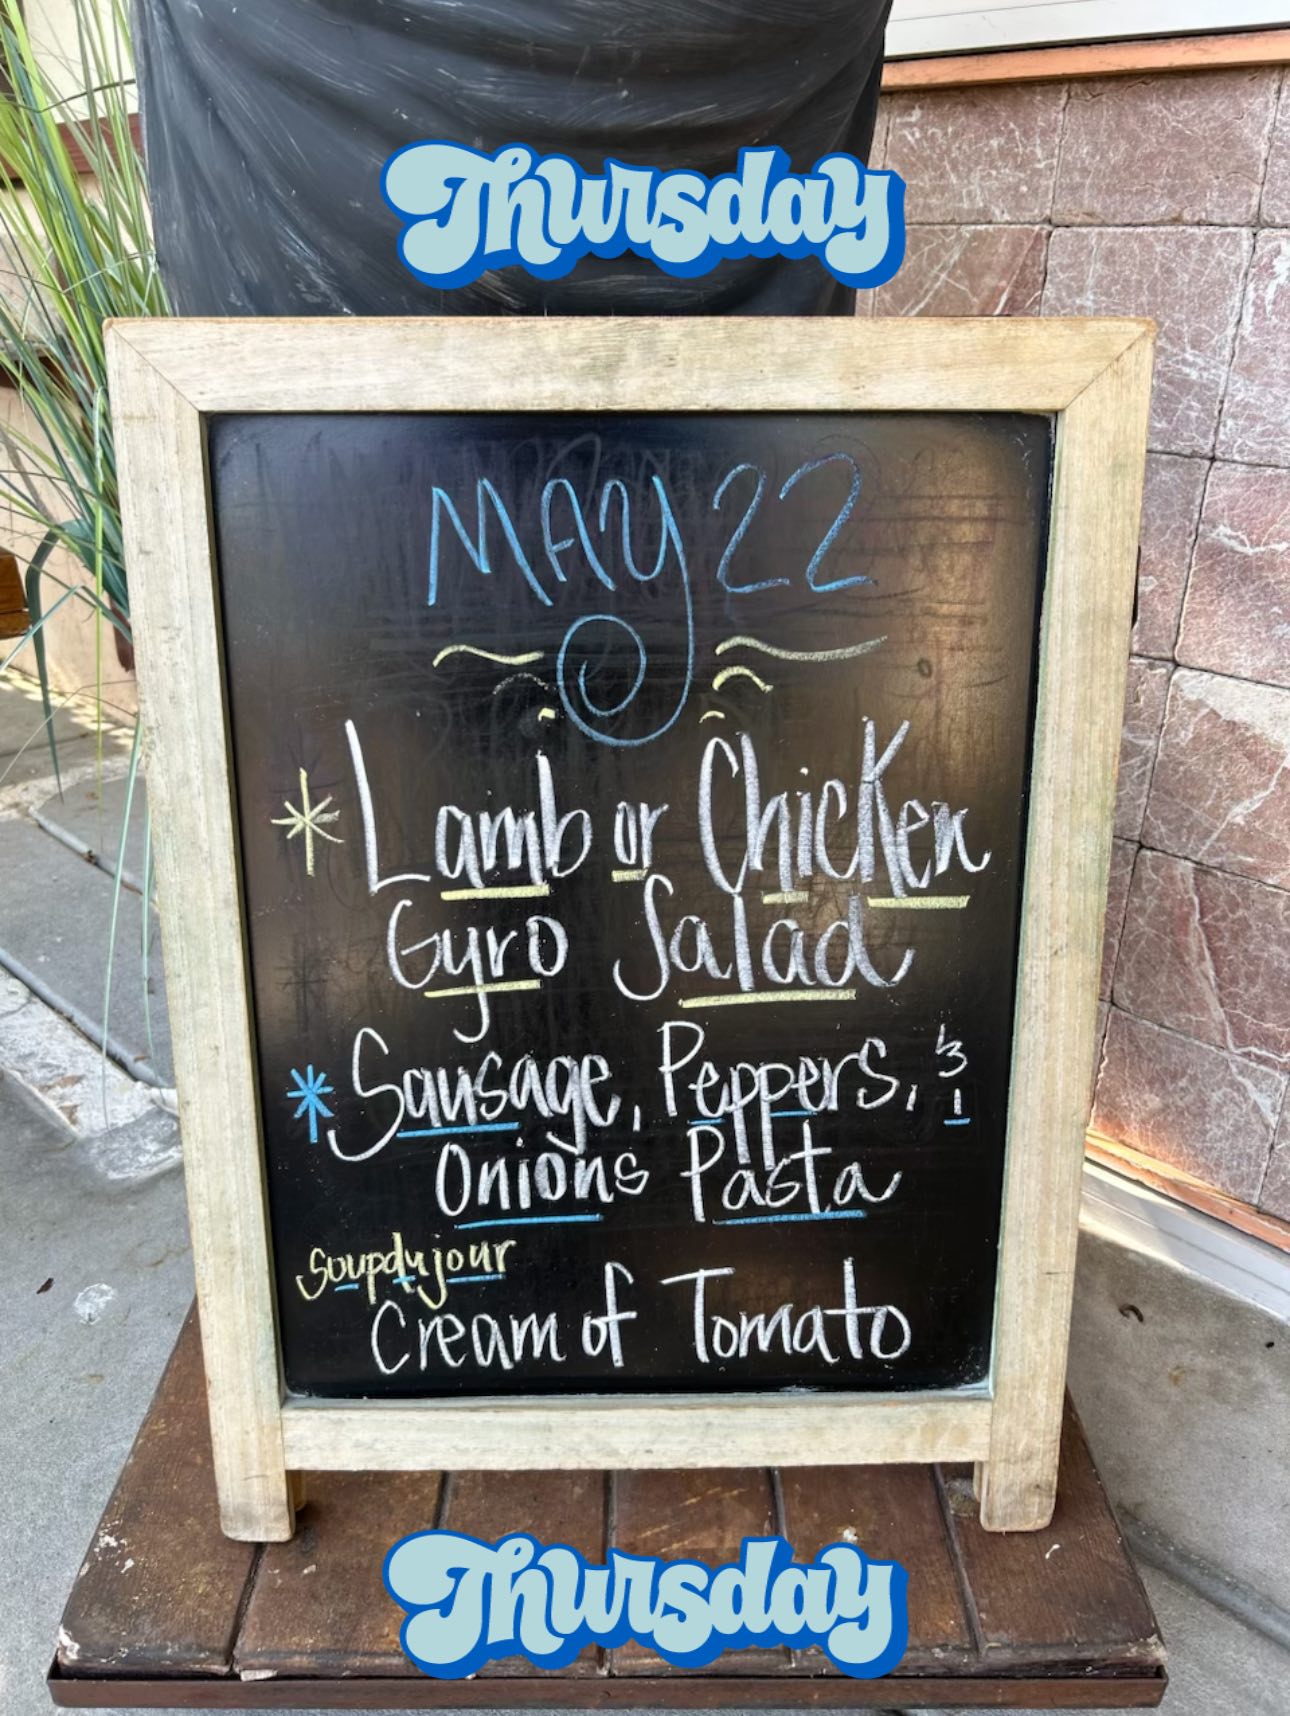 Thursday
MAY 22
* Lamb or Chicken
Gyro Salad
* Sausage, Peppers, &
Onions Pasta
Soup du jour
Cream of Tomato
Thursday